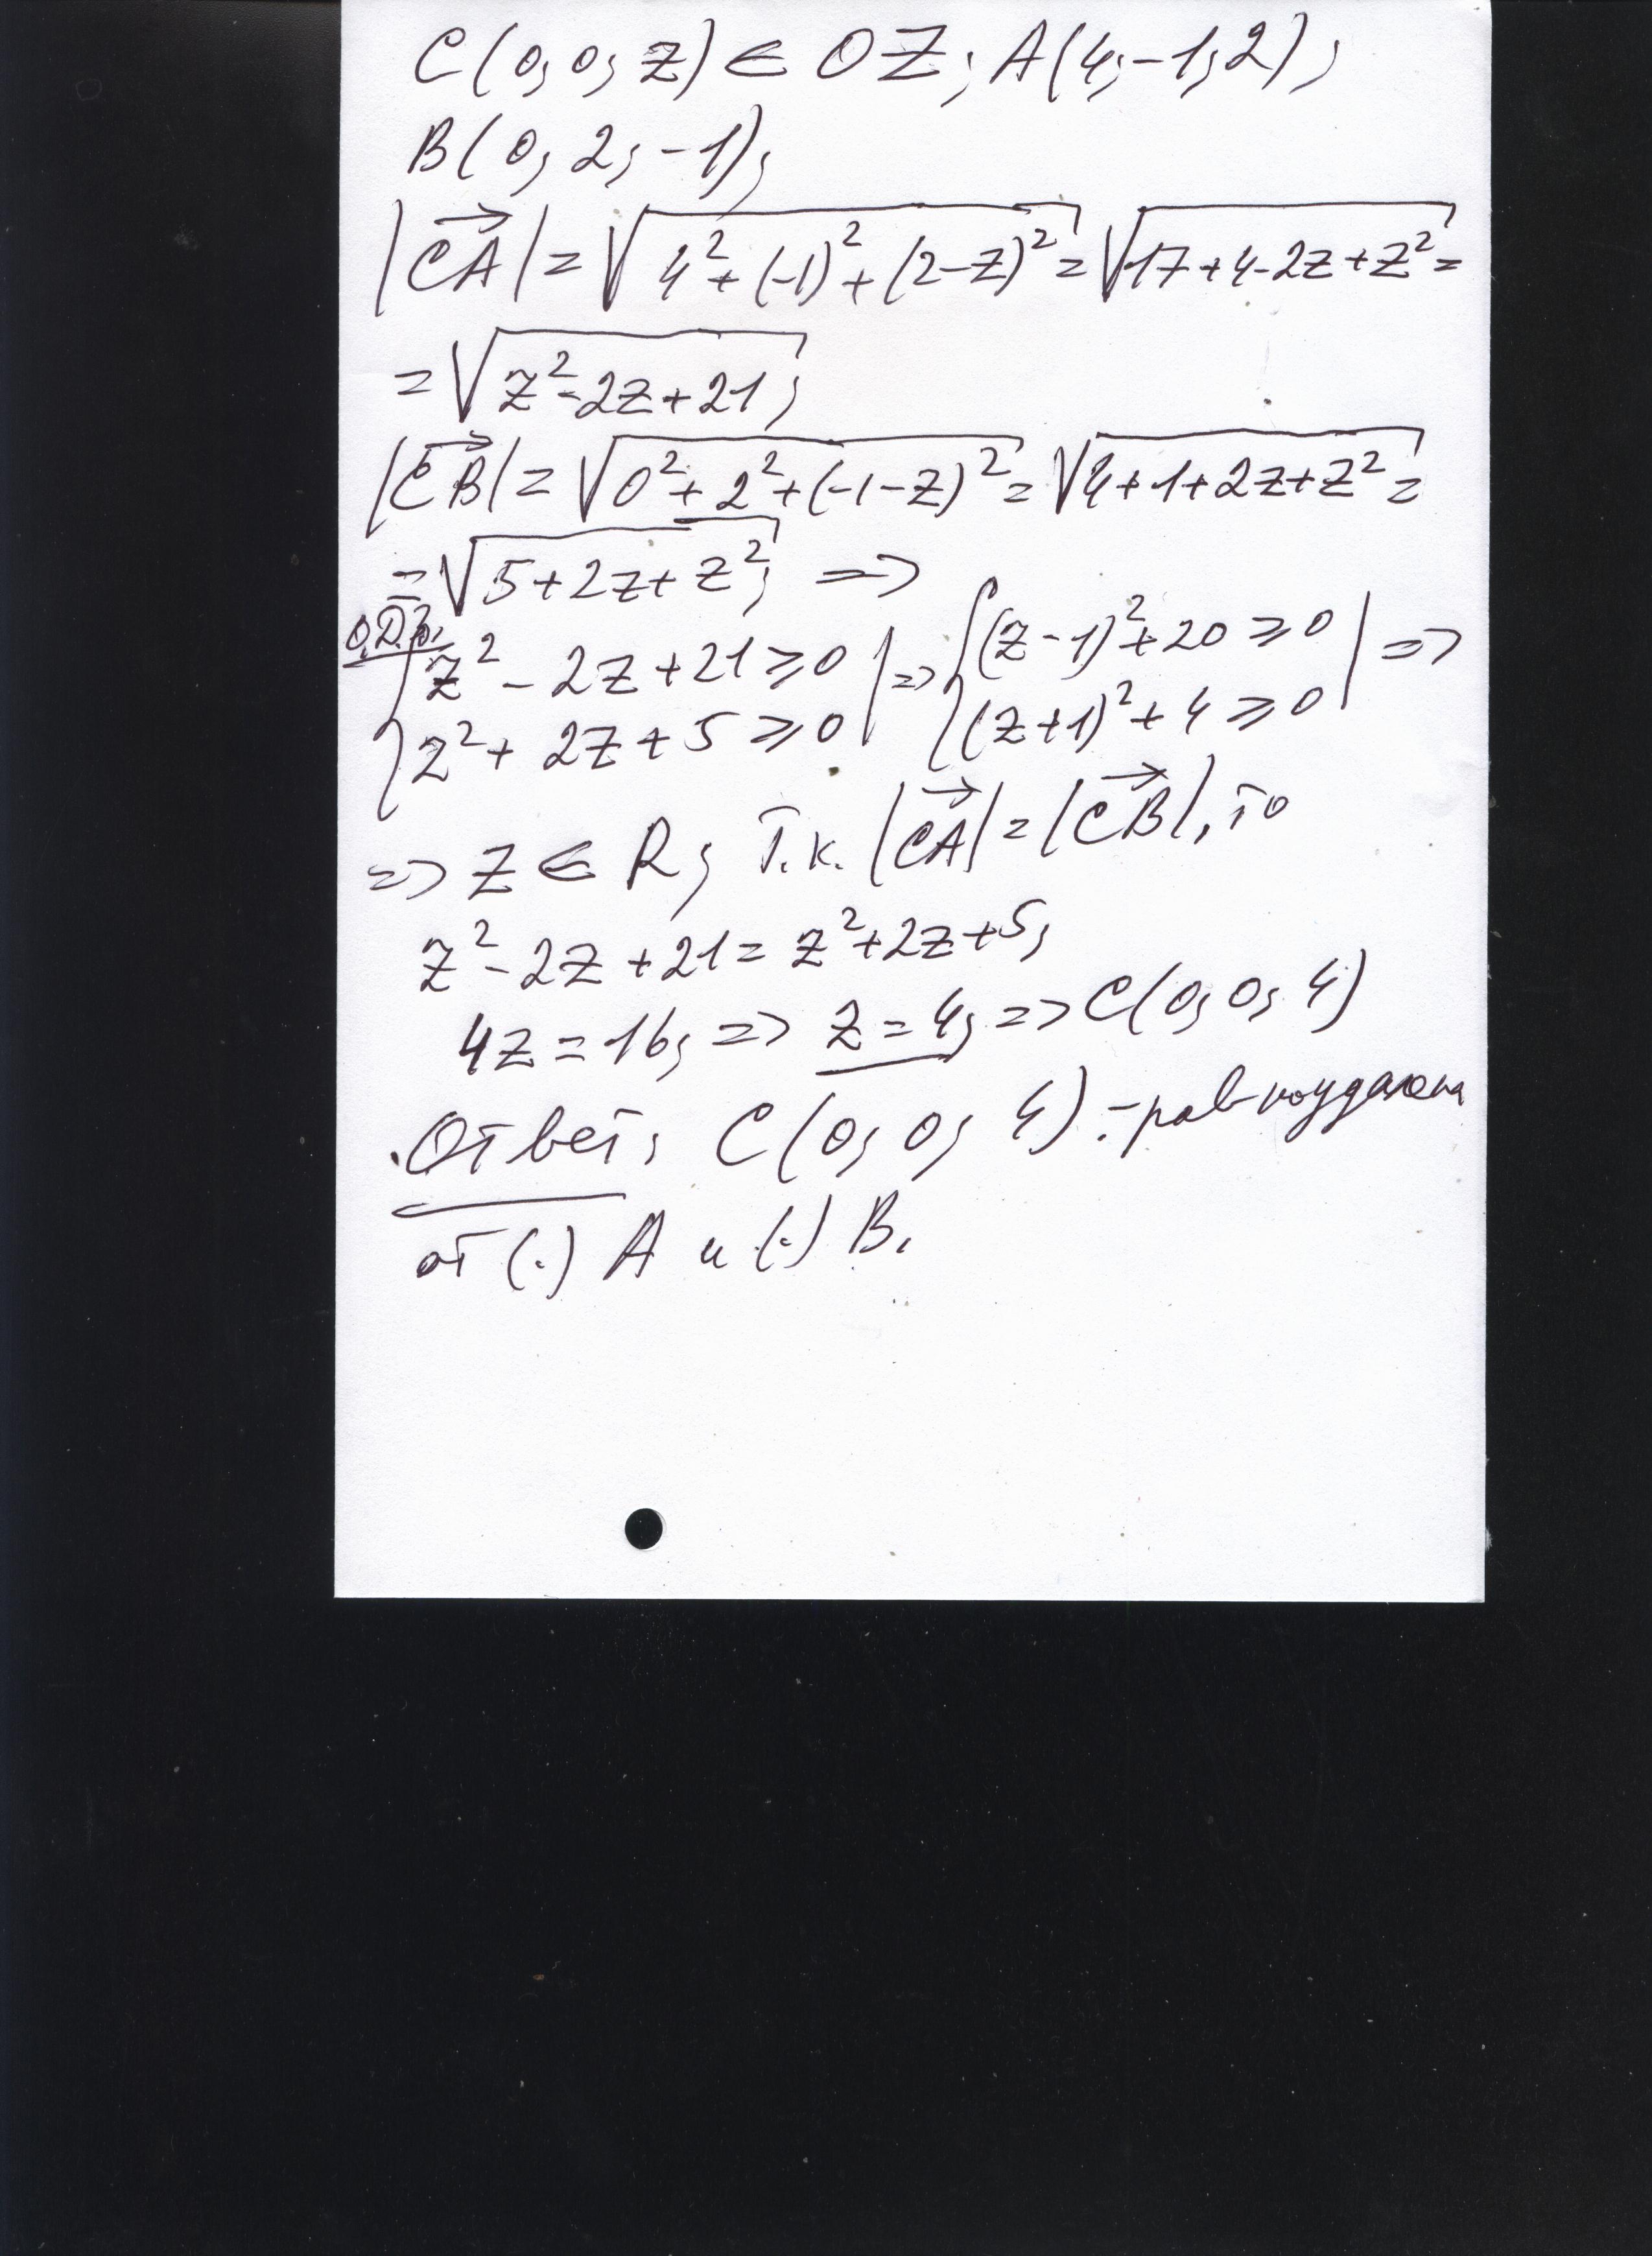 C(0; 0; z) ∈ OZ; A(4; -1; 2);
B(0; 2; -1);
|CA| = √(4² + (-1)² + (2-z)²) = √(17 + 4 - 2z + z²) =
= √(z² - 2z + 21);
|CB| = √(0² + 2² + (-1-z)²) = √(4 + 1 + 2z + z²) =
= √(5 + 2z + z²); =>
О.Д.З.
{ z² - 2z + 21 ≥ 0 | => { (z-1)² + 20 ≥ 0 | =>
{ z² + 2z + 5 ≥ 0 | { (z+1)² + 4 ≥ 0 |
=> z ∈ R; Т.к. |CA| = |CB|, то
z² - 2z + 21 = z² + 2z + 5;
4z = 16; => z = 4; => C(0; 0; 4)
Ответ: C(0; 0; 4) - равноудалена
от (.) A и (.) B.